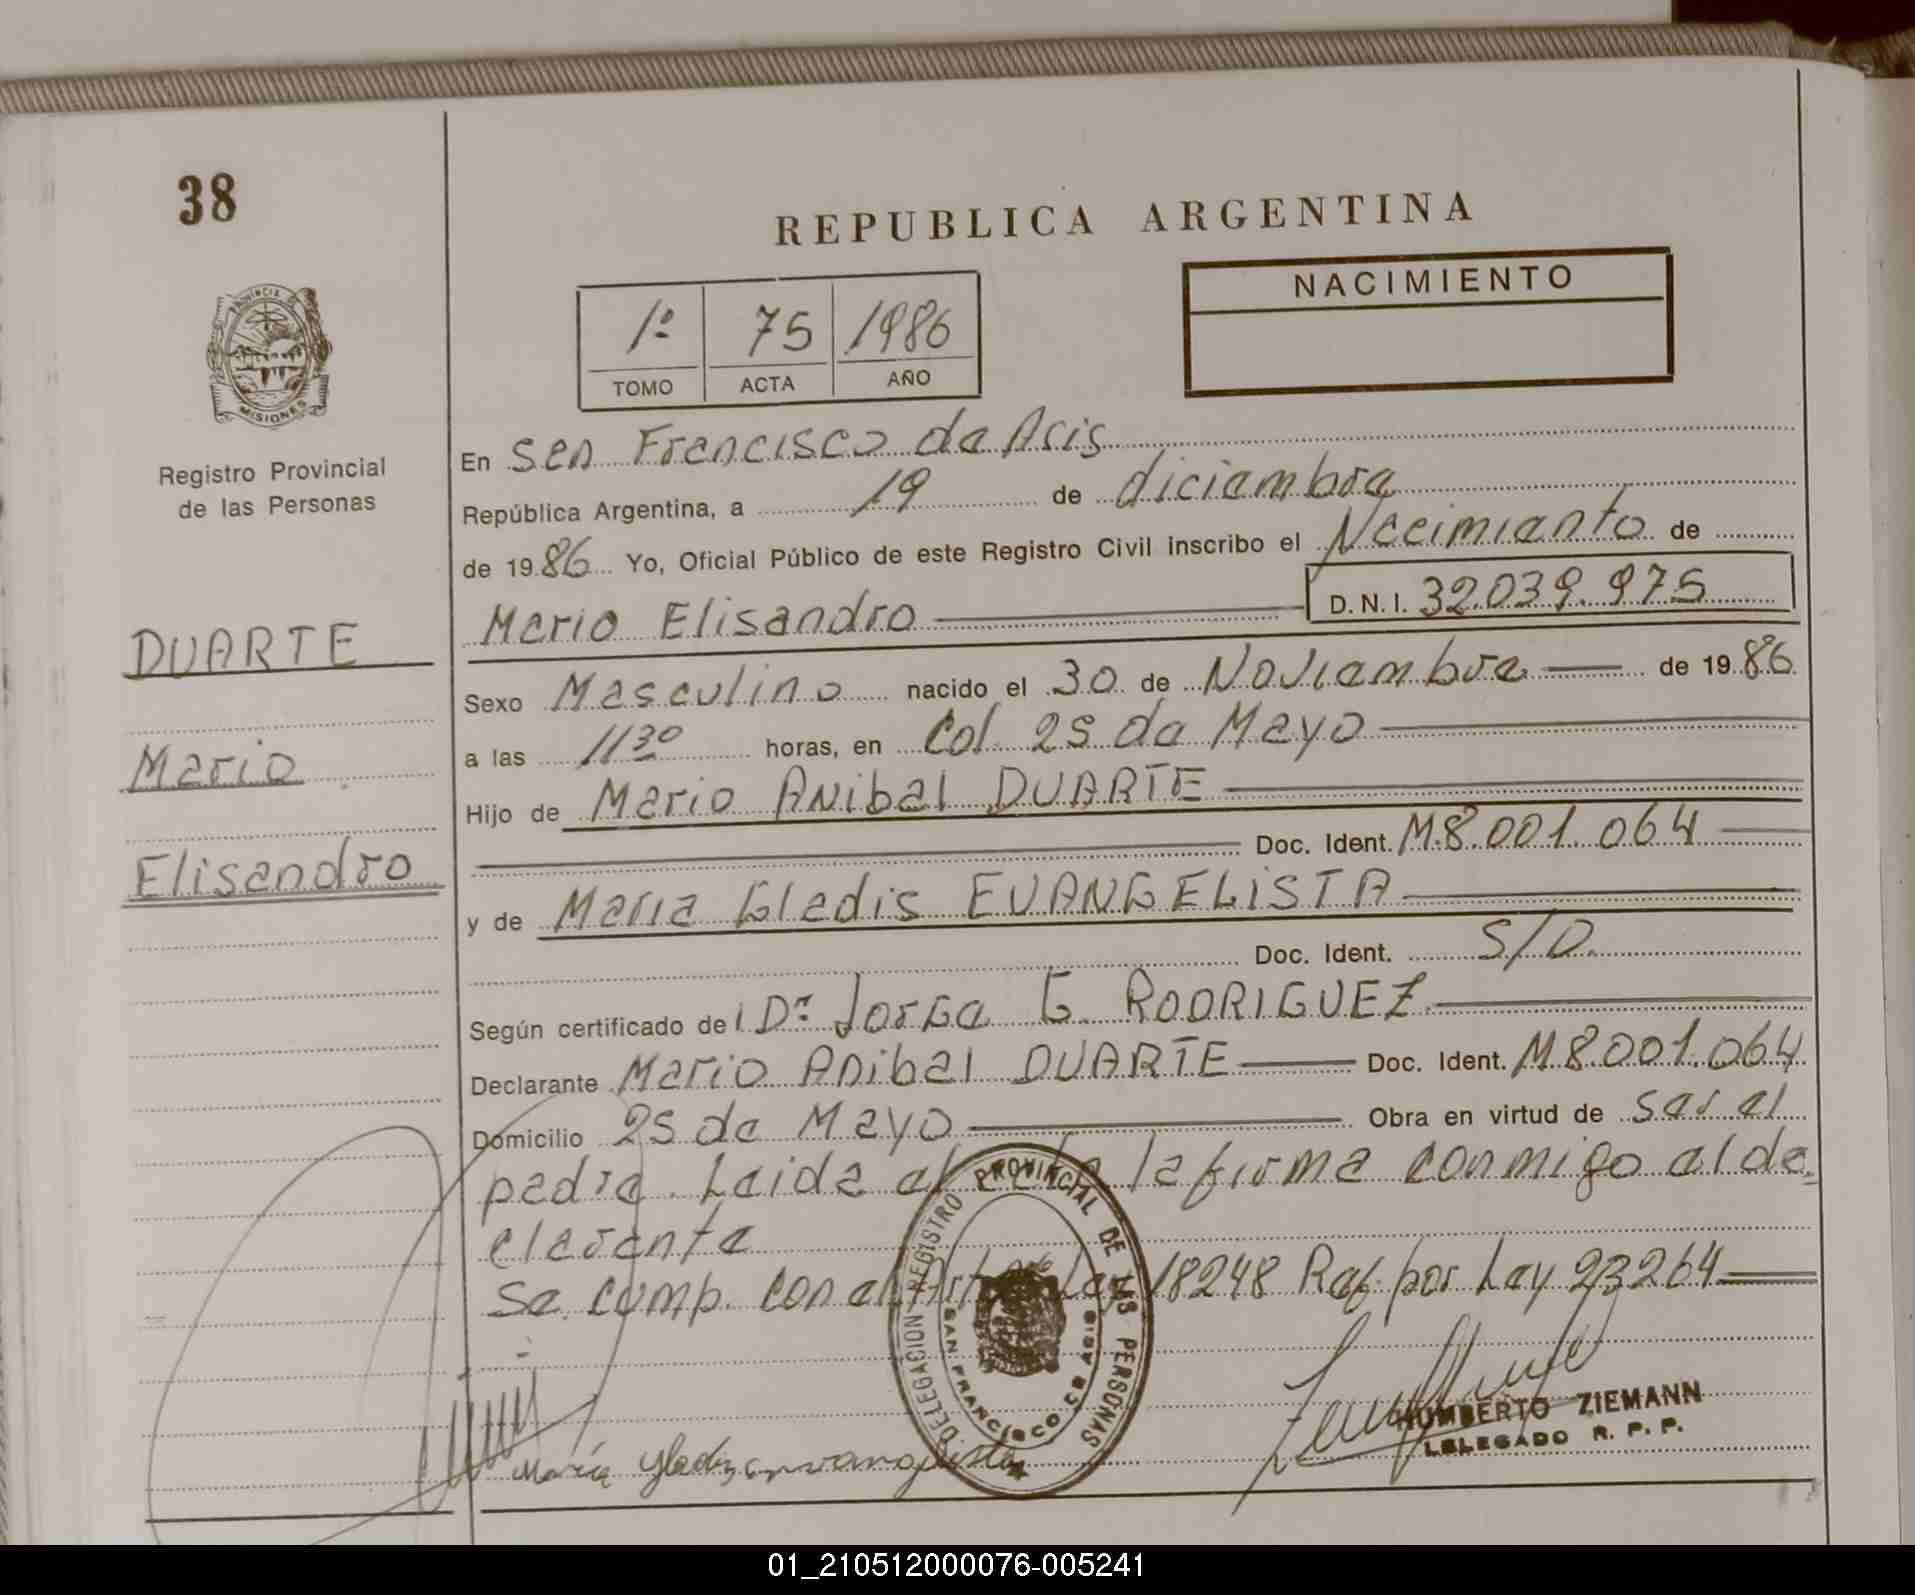 38
REPUBLICA ARGENTINA
NACIMIENTO
1º 75 1986
TOMO ACTA AÑO
PROVINCIA DE MISIONES
Registro Provincial
de las Personas
DUARTE
Mario
Elisandro
En San Francisco de Asis
República Argentina, a 19 de diciembre
de 1986 Yo, Oficial Público de este Registro Civil inscribo el Nacimiento de
Mario Elisandro D.N.I. 32.039.975
Sexo Masculino nacido el 30 de Noviembre de 1986
a las 11 30 horas, en Col 25 de Mayo
Hijo de Mario Anibal DUARTE
Doc. Ident. M.8.001.064
y de Maria Gladis EVANGELISTA
Doc. Ident. S/D.
Según certificado del Dr Jorge G. RODRIGUEZ
Declarante Mario Anibal DUARTE Doc. Ident. M.8.001.064
Domicilio 25 de Mayo Obra en virtud de ser el
padre. Leida el acta la firma conmigo el de=
clarante
Se cump. con el Art. Ley 18248 Ref. por Ley 23264
DELEGACION REGISTRO PROVINCIAL DE LAS PERSONAS
SAN FRANCISCO DE ASIS
María Gladis Evangelista
HUMBERTO ZIEMANN
DELEGADO R. P. P.
01_210512000076-005241